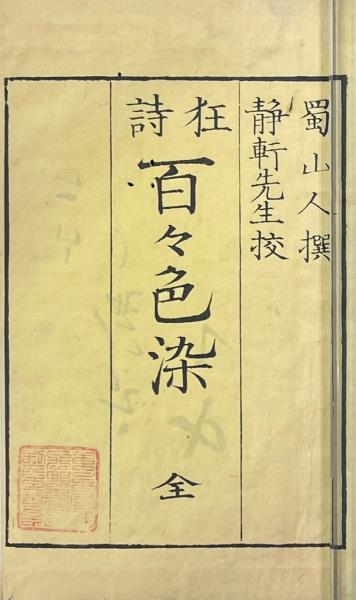 蜀山人撰
静軒先生挍
狂詩
百々色染
全